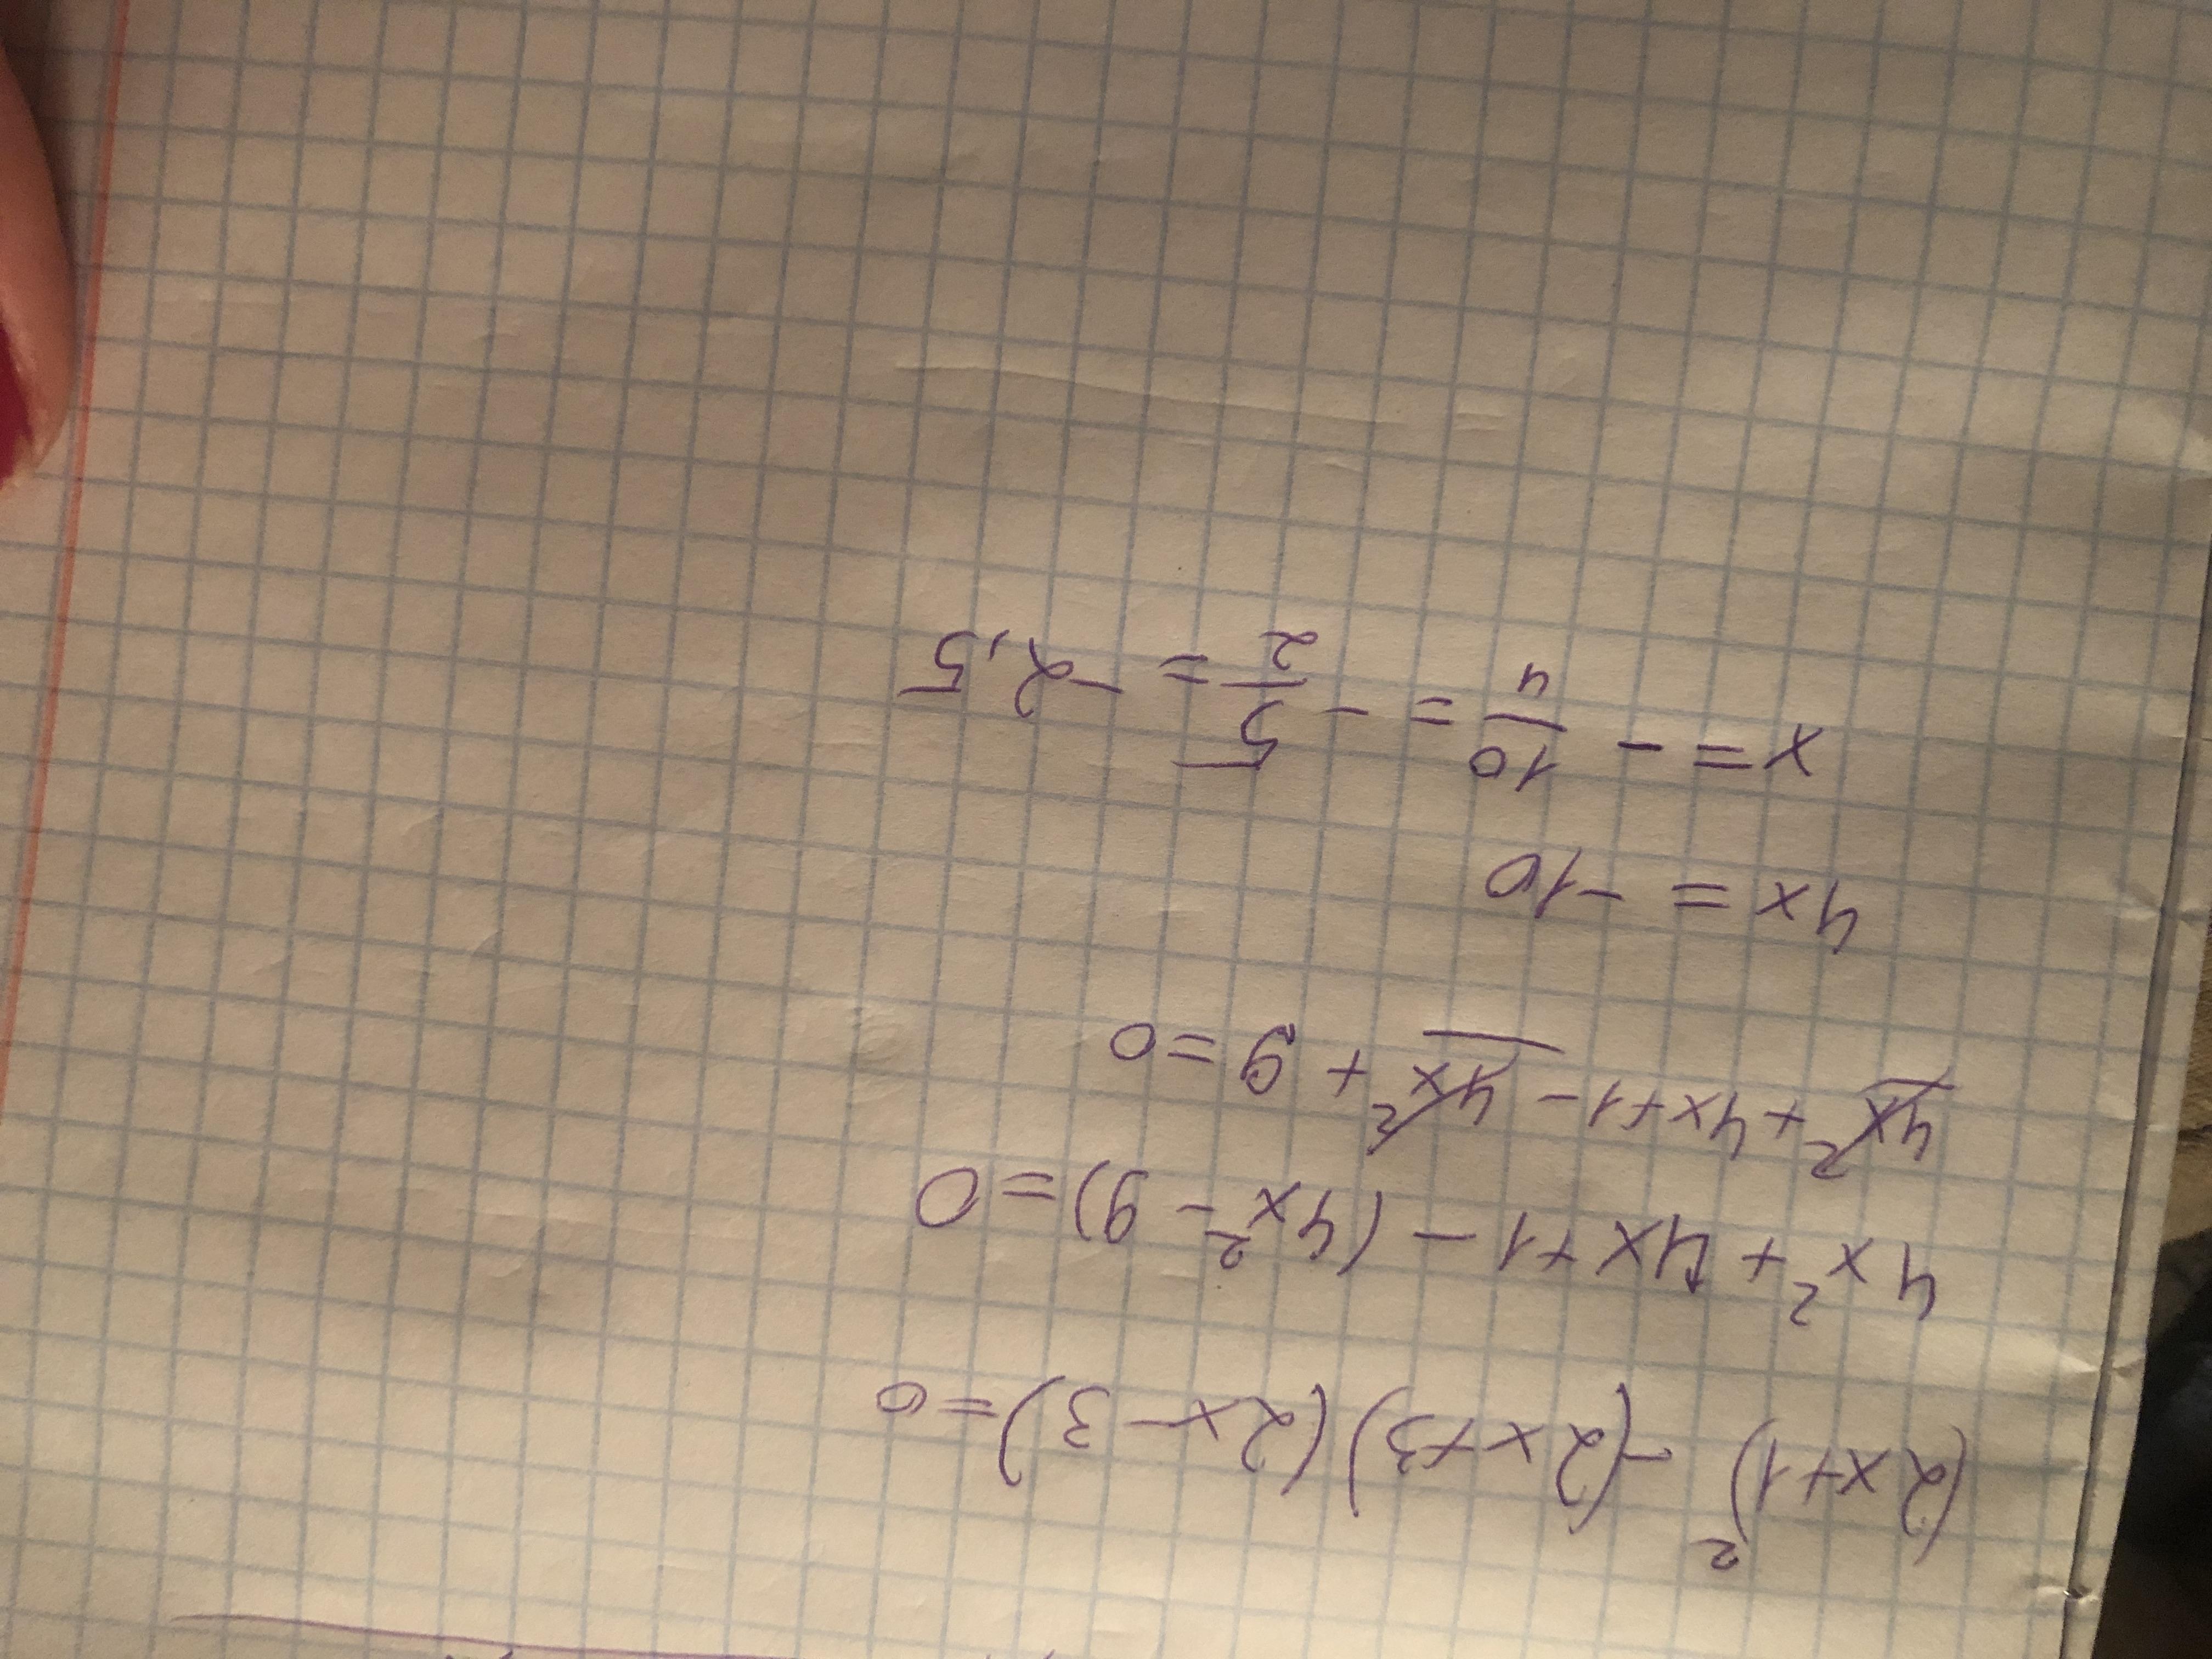 (2x+1)² -(2x+3)(2x-3)=0
4x²+4x+1-(4x²-9)=0
4x²+4x+1-4x²+9=0
4x=-10
x=-10/4=-5/2=-2,5